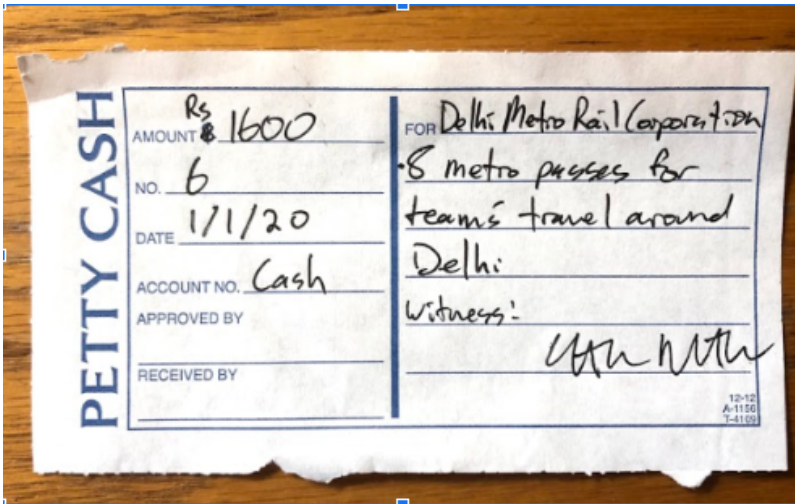 PETTY CASH
Rs
AMOUNT $ 1600
NO. 6
DATE 1/1/20
ACCOUNT NO. Cash
APPROVED BY
RECEIVED BY
FOR Delhi Metro Rail Corporation
8 metro passes for
team's travel around
Delhi
witness:
12-12
A-1156
T-4109